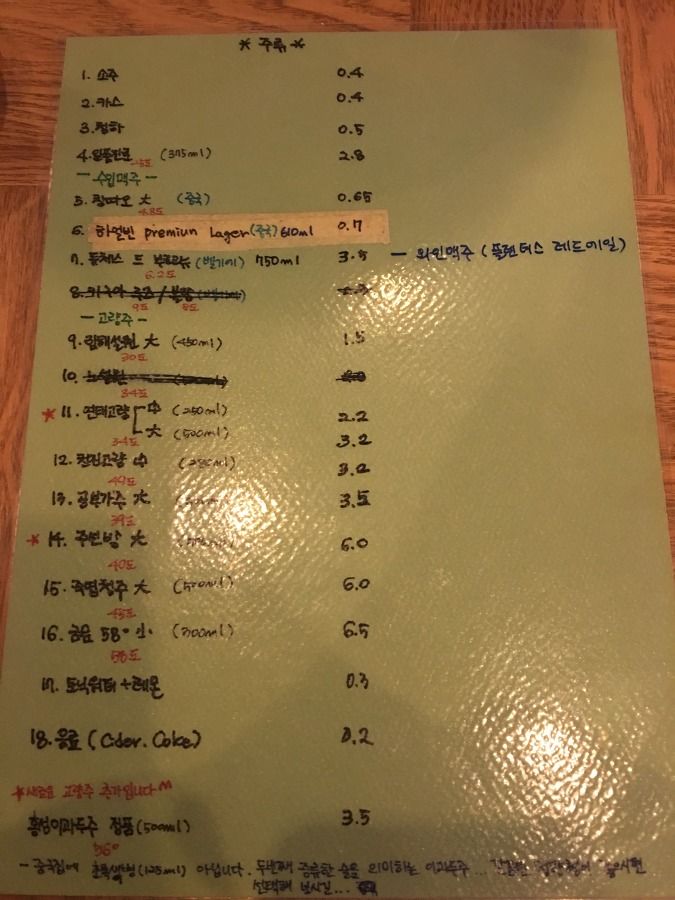 * 주류 *
1. 소주 0.4
2. 카스 0.4
3. 청하 0.5
4. 일품진로 (375ml) 2.8
25도
- 수입맥주 -
5. 칭따오 大 (중국) 0.65
4.8도
6. 하얼빈 premiun Lager (중국) 610ml 0.7
7. 듀체스 드 부르고뉴 (벨기에) 750ml 3.5 - 와인맥주 (플랜더스 레드에일)
6.2도
8.
9도 8도
- 고량주 -
9. 大 (450ml) 1.5
30도
10. 노
34도
* 11. 연태고량 中 (250ml) 2.2
大 (500ml) 3.2
34도
12. 천진고량 中 3.2
49도
13. 공부가주 大 3.5
39도
* 14. 大 6.0
40도
15. 죽엽청주 大 (500ml) 6.0
45도
16. 금문 58° 小 (300ml) 6.5
58도
17. 토닉워터 + 레몬 0.3
18. 음료 (Cider. Coke) 0.2
* 새로운 고량주 추가입니다 ^^
홍성이과두주 정품 (500ml) 3.5
56°
- 중국집에 초록색병 (125ml) 아닙니다. 두번째 증류한 술을 의미하는 이과두주...
선택해 보시길...